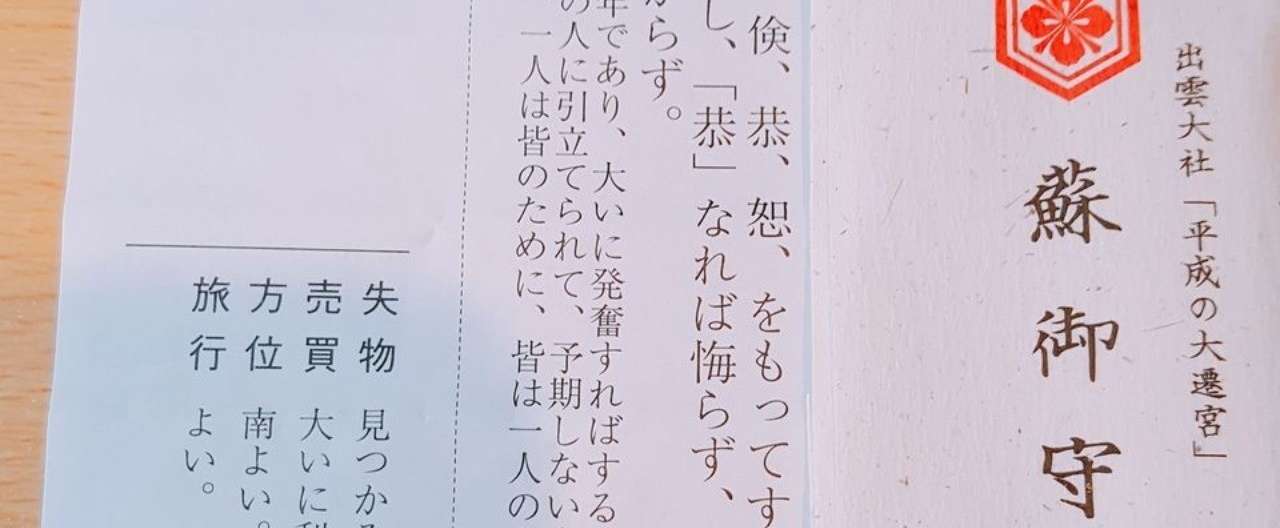 出雲大社「平成の大遷宮」
蘇御守
倹、恭、恕、をもってす
し、「恭」なれば悔らず、
からず。
年であり、大いに発奮すればする
の人に引立てられて、予期しない
一人は皆のために、皆は一人の
失物 見つかる
売買 大いに利
方位 南よい。
旅行 よい。